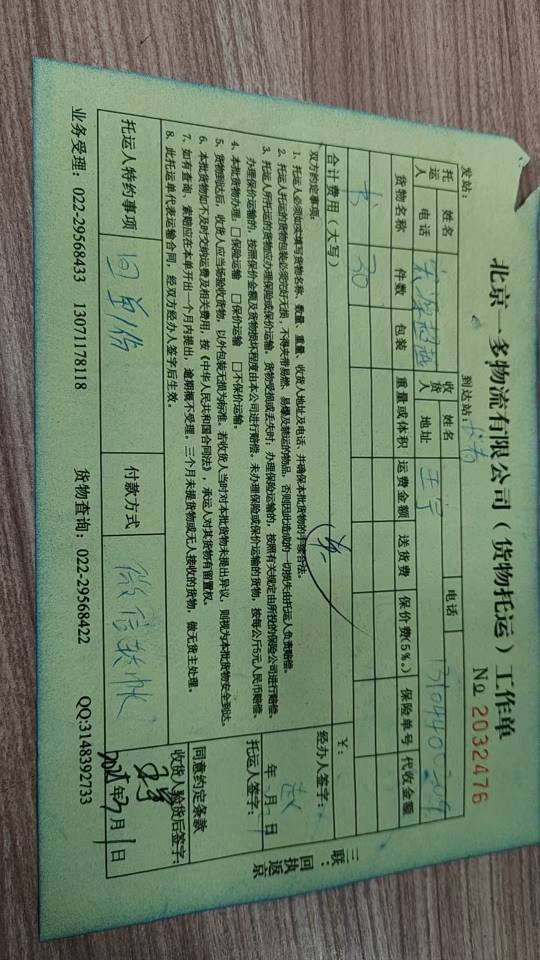 北京一多物流有限公司（货物托运）工作单
№ 2032476
发站：
到达站：
托运人
姓名
电话
收货人
姓名
地址
王宁
电话
货物名称 件数 包装 重量或体积 运费金额 送货费 保价费(5‰) 保险单号 代收金额
30
合计费用（大写）
￥：
双方约定事项：
1、托运人必须如实填写货物名称、数量、重量、收货人地址及电话，并确保本批货物的手续合法。
2、托运人托运的货物包装必须完好无损，不得夹带易燃、易爆及禁运的物品，否则因此造成的一切损失由托运人负责赔偿。
3、托运人所托运的货物应办理保险或保价运输。货物受损或丢失时：办理保险运输的，按照有关规定由所投的保险公司进行赔偿。
办理保价运输的，按照保价金额及货物损坏程度由本公司进行赔偿。未办理保险或保价运输的货物，按每公斤5元人民币赔偿。
4、本批货物办理：□保险运输 □保价运输 □不保价运输。
5、货物到达后，收货人应当场验收货物，以外包装无损为标准。若收货人当时对本批货物未提出异议，则视为本批货物安全到达。
6、本批货物如不及时交纳运费及相关费用，按《中华人民共和国合同法》，承运人对其货物有留置权。
7、如有查询、索赔应在本单开出一个月内提出，逾期概不受理。三个月未提货物或无人接收的货物，做无货主处理。
8、此托运单代表运输合同，经双方经办人签字后生效。
经办人签字：
年 月 日
托运人签字：
同意约定条款
收货人验货后签字：
年 7 月 1 日
托运人特约事项
回单1份
付款方式
微信转帐
三联：回执返京
业务受理：022-29568433 13071178118 货物查询：022-29568422 QQ:3148392733